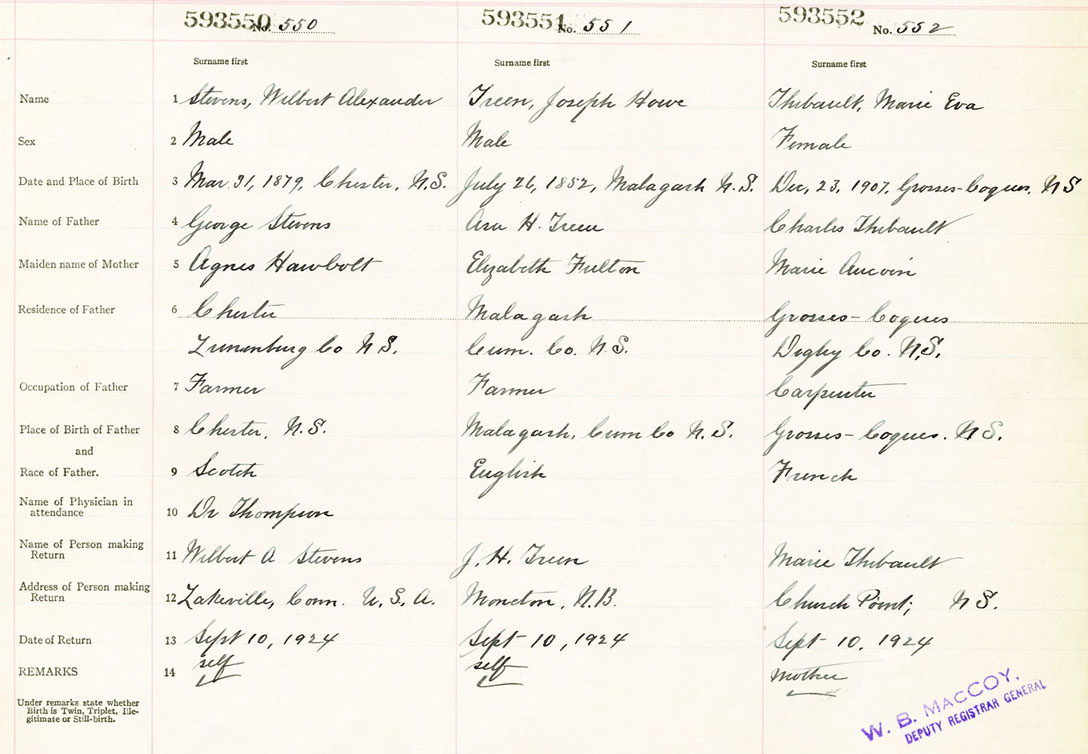 593550 No. 550 593551 No. 551 593552 No. 552
Surname first Surname first Surname first
Name 1 Stevens, Wilbert Alexander Treen, Joseph Howe Thibault, Marie Eva
Sex 2 Male Male Female
Date and Place of Birth 3 Mar 31, 1879, Chester, N.S. July 26, 1852, Malagash N.S. Dec, 23, 1907, Grosses-Coques, NS
Name of Father 4 George Stevens Asa H. Treen Charles Thibault
Maiden name of Mother 5 Agnes Hawbolt Elizabeth Fulton Marie Aucoin
Residence of Father 6 Chester Malagash Grosses-Coques
Lunenburg Co N.S. Cum. Co. N.S. Digby Co. N.S.
Occupation of Father 7 Farmer Farmer Carpenter
Place of Birth of Father 8 Chester, N.S. Malagash, Cum Co N.S. Grosses-Coques. N.S.
and
Race of Father. 9 Scotch English French
Name of Physician in
attendance 10 Dr Thompson
Name of Person making
Return 11 Wilbert A Stevens J. H. Treen Marie Thibault
Address of Person making
Return 12 Lakeville, Conn. U.S.A. Moncton, N.B. Church Point; N S.
Date of Return 13 Sept 10, 1924 Sept 10, 1924 Sept 10, 1924
REMARKS 14 self self mother
Under remarks state whether
Birth is Twin, Triplet, Ille-
gitimate or Still-birth.
W. B. MACCOY,
DEPUTY REGISTRAR GENERAL